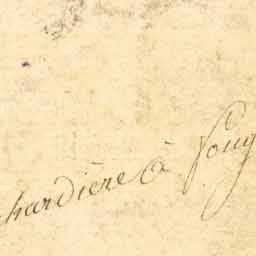 hardière à Foug